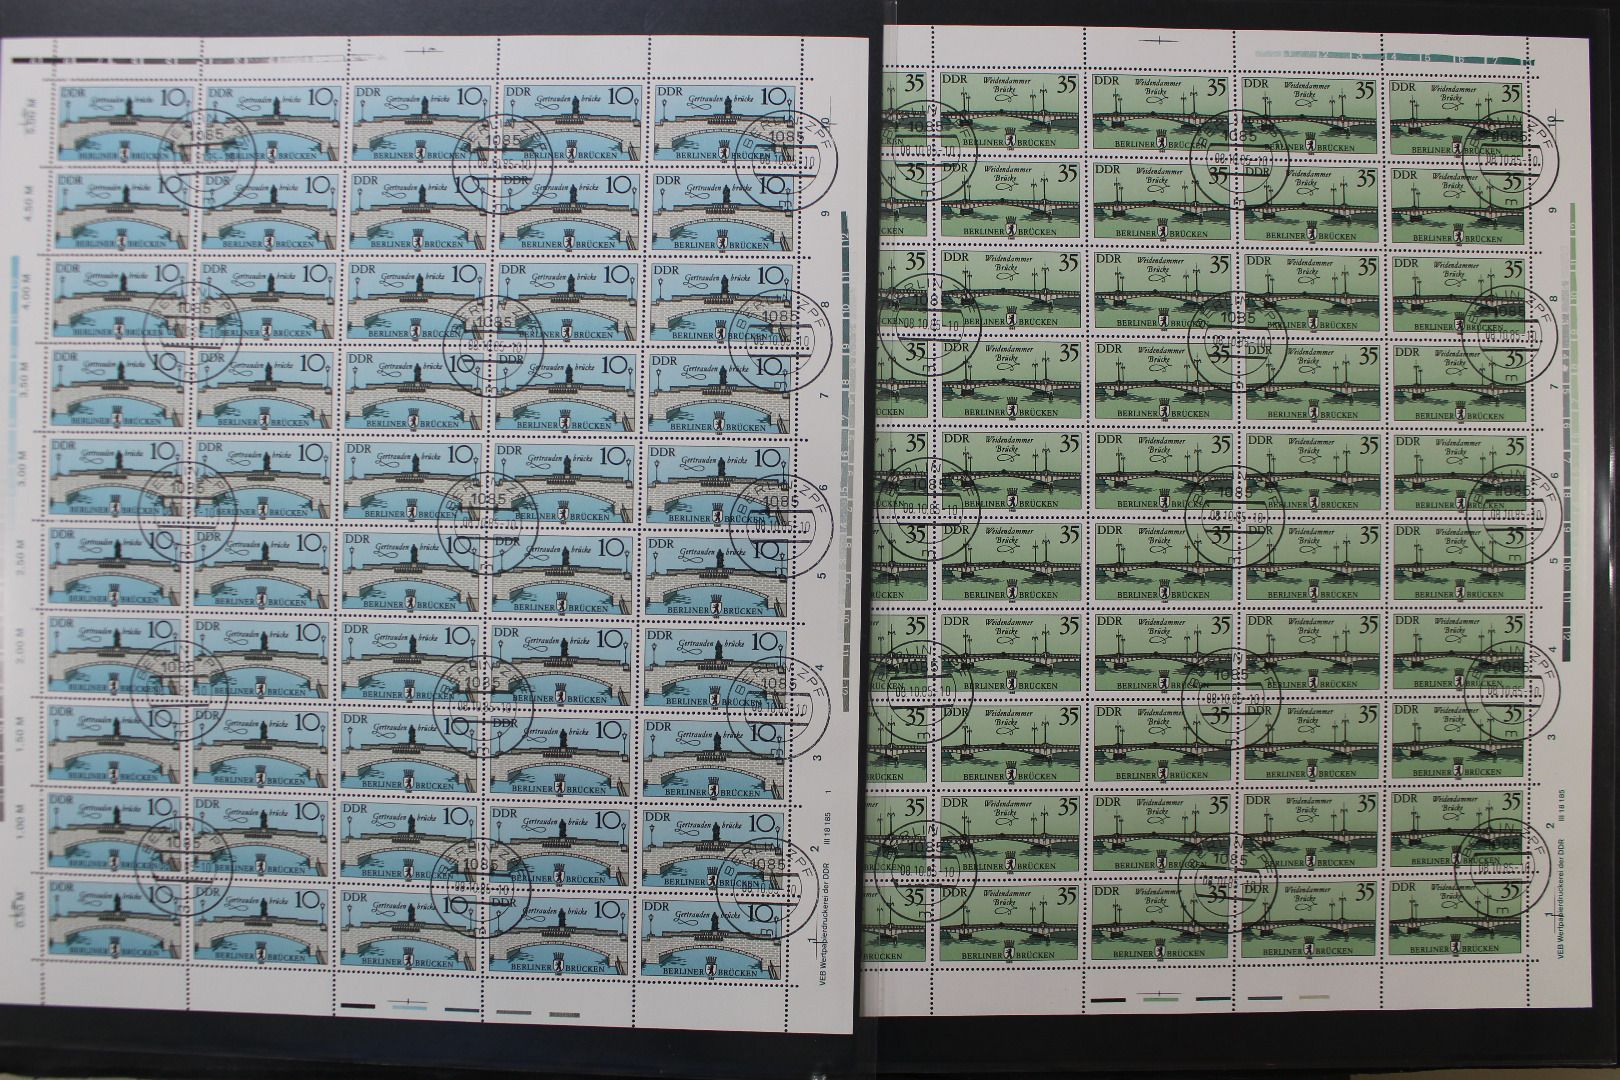 DDR Gertrauden brücke 10
BERLINER BRÜCKEN
DDR Weidendammer Brücke 35
BERLINER BRÜCKEN
BERLIN ZPF
1085
08.10.85-10
5.00 M
4.50 M
4.00 M
3.50 M
3.00 M
2.50 M
2.00 M
1.50 M
1.00 M
0.50 M
10
9
8
7
6
5
4
3
2
1
VEB Wertpapierdruckerei der DDR III 18 185
12 13 14 15 16 17
10
9
8
7
6
5
4
3
2
1
VEB Wertpapierdruckerei der DDR III 18 185